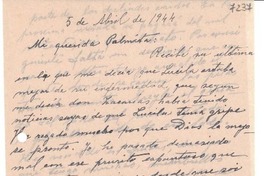 7237
5 de Abril de 1944
Mi querida Palmita:
Recibí su última
en la que me decía que Lucila estaba
mejor de su enfermedad, que segun
me decía don Zacarías había tenido
noticias suyas de que Lucila tenía gripe
Yo ruego mucho por que Dios la mejo
re pronto. Yo he pasado demasiada
mal con ese prurito espantoso que
desde que soi